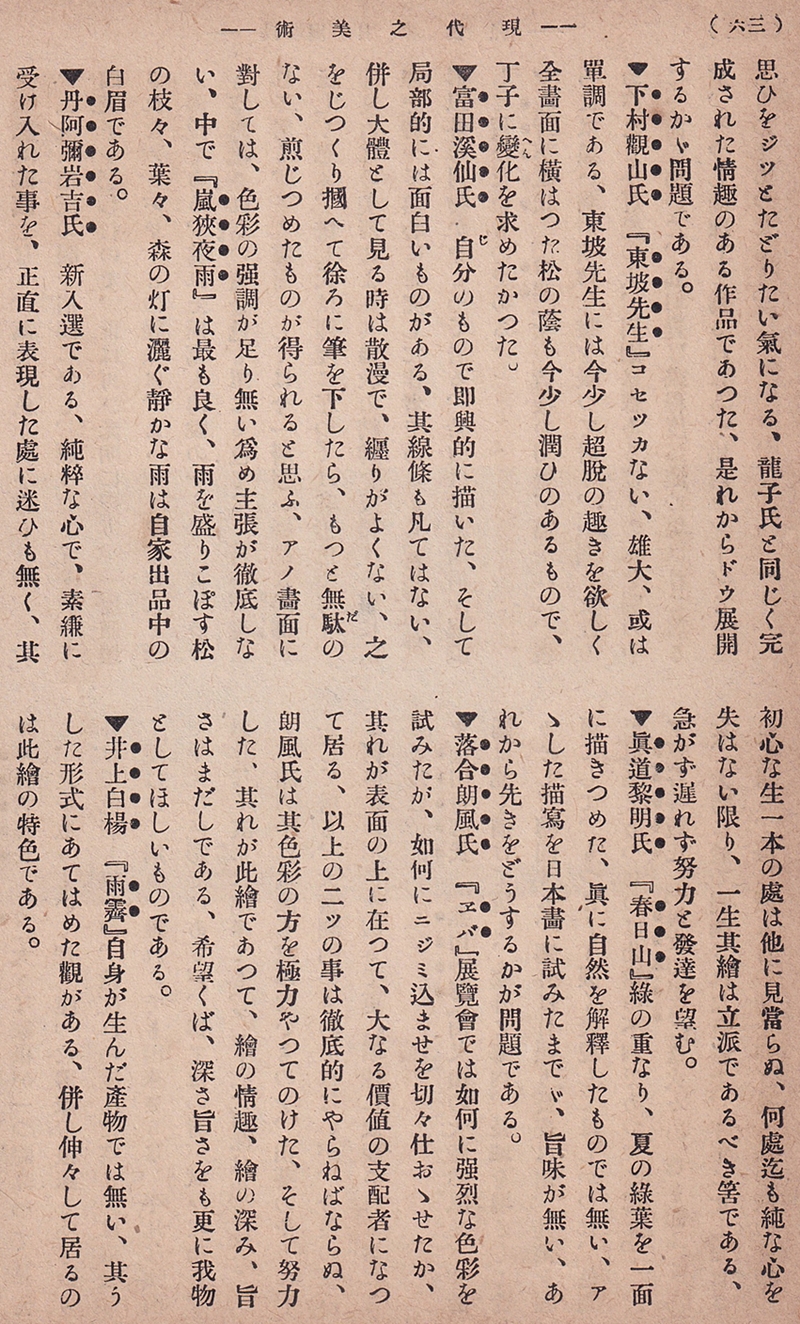 （三六）
――現代之美術――
思ひをジッとたどりたい氣になる、龍子氏と同じく完
成された情趣のある作品であつた、是れからドウ展開
するかゞ問題である。
▼下村觀山氏　『東坡先生』コセツカない、雄大、或は
單調である、東坡先生には今少し超脱の趣きを欲しく
全畫面に横はつた松の蔭も今少し潤ひのあるもので、
丁子に變化を求めたかつた。
▼富田溪仙氏　自分のもので即興的に描いた、そして
局部的には面白いものがある、其線條も凡てはない、
併し大體として見る時は散漫で、纒りがよくない、之
をじつくり摑へて徐ろに筆を下したら、もつと無駄の
ない、煎じつめたものが得られると思ふ、アノ畫面に
對しては、色彩の强調が足り無い爲め主張が徹底しな
い、中で『嵐狹夜雨』は最も良く、雨を盛りこぼす松
の枝々、葉々、森の灯に灑ぐ靜かな雨は自家出品中の
白眉である。
▼丹阿彌岩吉氏　新入選である、純粹な心で、素縑に
受け入れた事を、正直に表現した處に迷ひも無く、其
初心な生一本の處は他に見當らぬ、何處迄も純な心を
失はない限り、一生其繪は立派であるべき筈である、
急がず遲れず努力と發達を望む。
▼眞道黎明氏　『春日山』綠の重なり、夏の綠葉を一面
に描きつめた、眞に自然を解釋したものでは無い、ア
ヽした描寫を日本畫に試みたまでゞ、旨味が無い、あ
れから先きをどうするかが問題である。
▼落合朗風氏　『ヱバ』展覽會では如何に强烈な色彩を
試みたが、如何にニジミ込ませを切々仕おゝせたか、
其れが表面の上に在つて、大なる價値の支配者になつ
て居る、以上の二ツの事は徹底的にやらねばならぬ、
朗風氏は其色彩の方を極力やつてのけた、そして努力
した、其れが此繪であつて、繪の情趣、繪の深み、旨
さはまだしである、希望くば、深さ旨さをも更に我物
としてほしいものである。
▼井上白楊　『雨霽』自身が生んだ産物では無い、其う
した形式にあてはめた觀がある、併し伸々して居るの
は此繪の特色である。